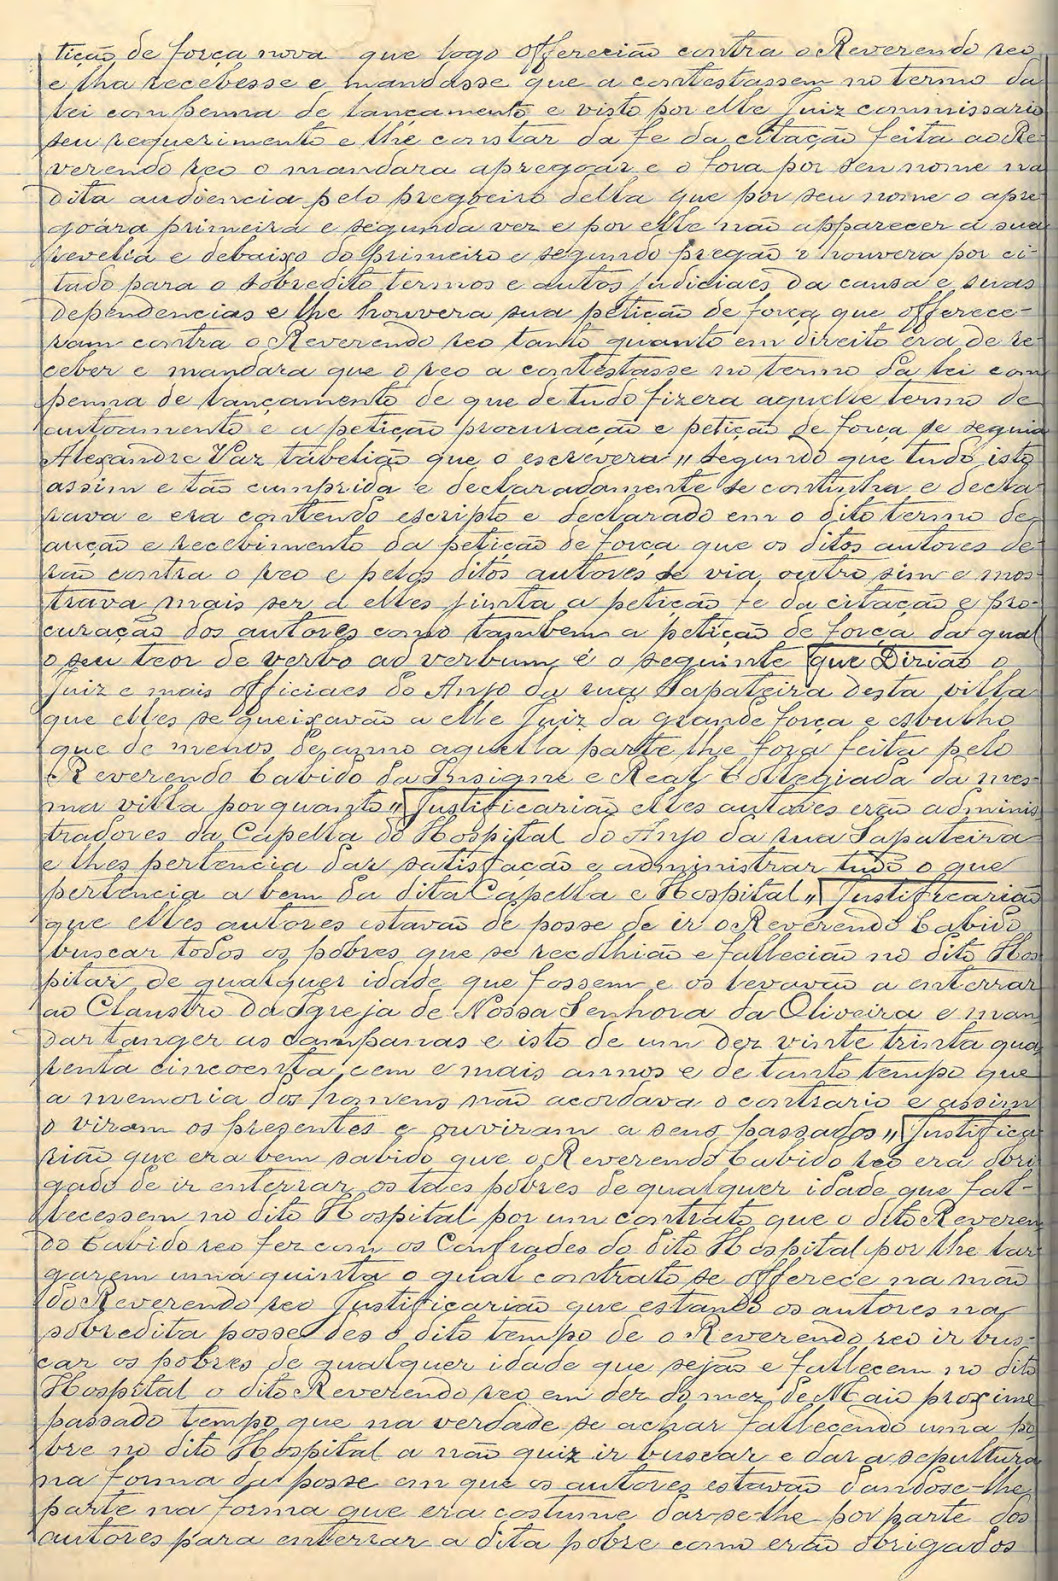 tição de força nova que logo offerecião contra o Reverendo reo
e lha recebesse e mandasse que a contestassem no termo da
lei com penna de lançamento e visto por elle Juiz commissario
seu requerimento e lhe constar da fe da citação feita ao Re-
verendo reo o mandara apregoar e o fora por seu nome na
dita audiencia pelo pregoeiro della que por seu nome o apre
goára primeira e segunda vez e por elle não apparecer á sua
revelia e debaixo do primeiro e segundo pregão o houvera por ci-
tado para o sobredito termos e autos judiciaes da causa e suas
dependencias e lhe houvera sua petição de força que offerece-
ram contra o Reverendo reo tanto quanto em direito era de re-
ceber e mandara que o reo a contestasse no termo da lei com
penna de lançamento de que de tudo fizera aquelle termo de
autoamento e a petição procuração e petição de força se seguia
Alexandre Vaz tabelião que o escrevera,, Segundo que tudo isto
assim e tão cumprida e declaradamente se continha e decla
rava e era contendo escripto e declarado em o dito termo de
aucção e recebimento da petição de força que os ditos autores de-
rão contra o reo e pelos ditos autores se via outro sim e mos-
trava mais ser a elles junta a petição fe da citação e pro-
curação dos autores como tambem a petição de força da qual
o seu teor de verbo ad verbum é o seguinte que Dirião o
Juiz e mais officiaes do Anjo da rua Sapateira desta villa
que elles se queixavão a elle Juiz da grande força e esbulho
que de menos dezanno aquella parte lhe fora feita pelo
Reverendo Cabido da Insigne e Real Collegiada da mes-
ma villa porquanto,, Justificarião elles autores erão adminis
tradores da Capella do Hospital do Anjo da rua Sapateira
e lhes pertencia dar satisfação e administrar tudo o que
pertencia a bem da dita Capella e Hospital,, Justificarião
que elles autores estavão de posse de ir o Reverendo Cabido
buscar todos os pobres que se recolhião e fallecião no dito Hos
pital de qualquer idade que fossem e os levavão a enterrar
ao Claustro da Igreja de Nossa Senhora da Oliveira e man
dar tanger as campanas e isto de um dez vinte trinta qua
renta cincoenta cem e mais annos e de tanto tempo que
a memoria dos homens não acordava o contrario e assim
o viram os presentes e ouviram a seus passados,, Justifica
rião que era bem sabido que o Reverendo Cabido reo era obri
gado de ir enterrar os taes pobres de qualquer idade que fal-
lecessem no dito Hospital por um contrato que o dito Reveren
do Cabido reo fez com os Confrades do dito Hospital por lhe lar
garem uma quinta o qual contrato se offerece na mão
do Reverendo reo Justificarião que estando os autores na
sobredita posse des o dito tempo de o Reverendo reo ir bus-
car os pobres de qualquer idade que sejão e fallecem no dito
Hospital o dito Reverendo reo em dez do mez de Maio proximo
passado tempo que na verdade se achar fallecendo uma po
bre no dito Hospital a não quiz ir buscar e dar a sepultura
na forma da posse em que os autores estavão dandose-lhe
parte na forma que era costume dar-se-lhe por parte dos
autores para enterrar a dita pobre como erão obrigados